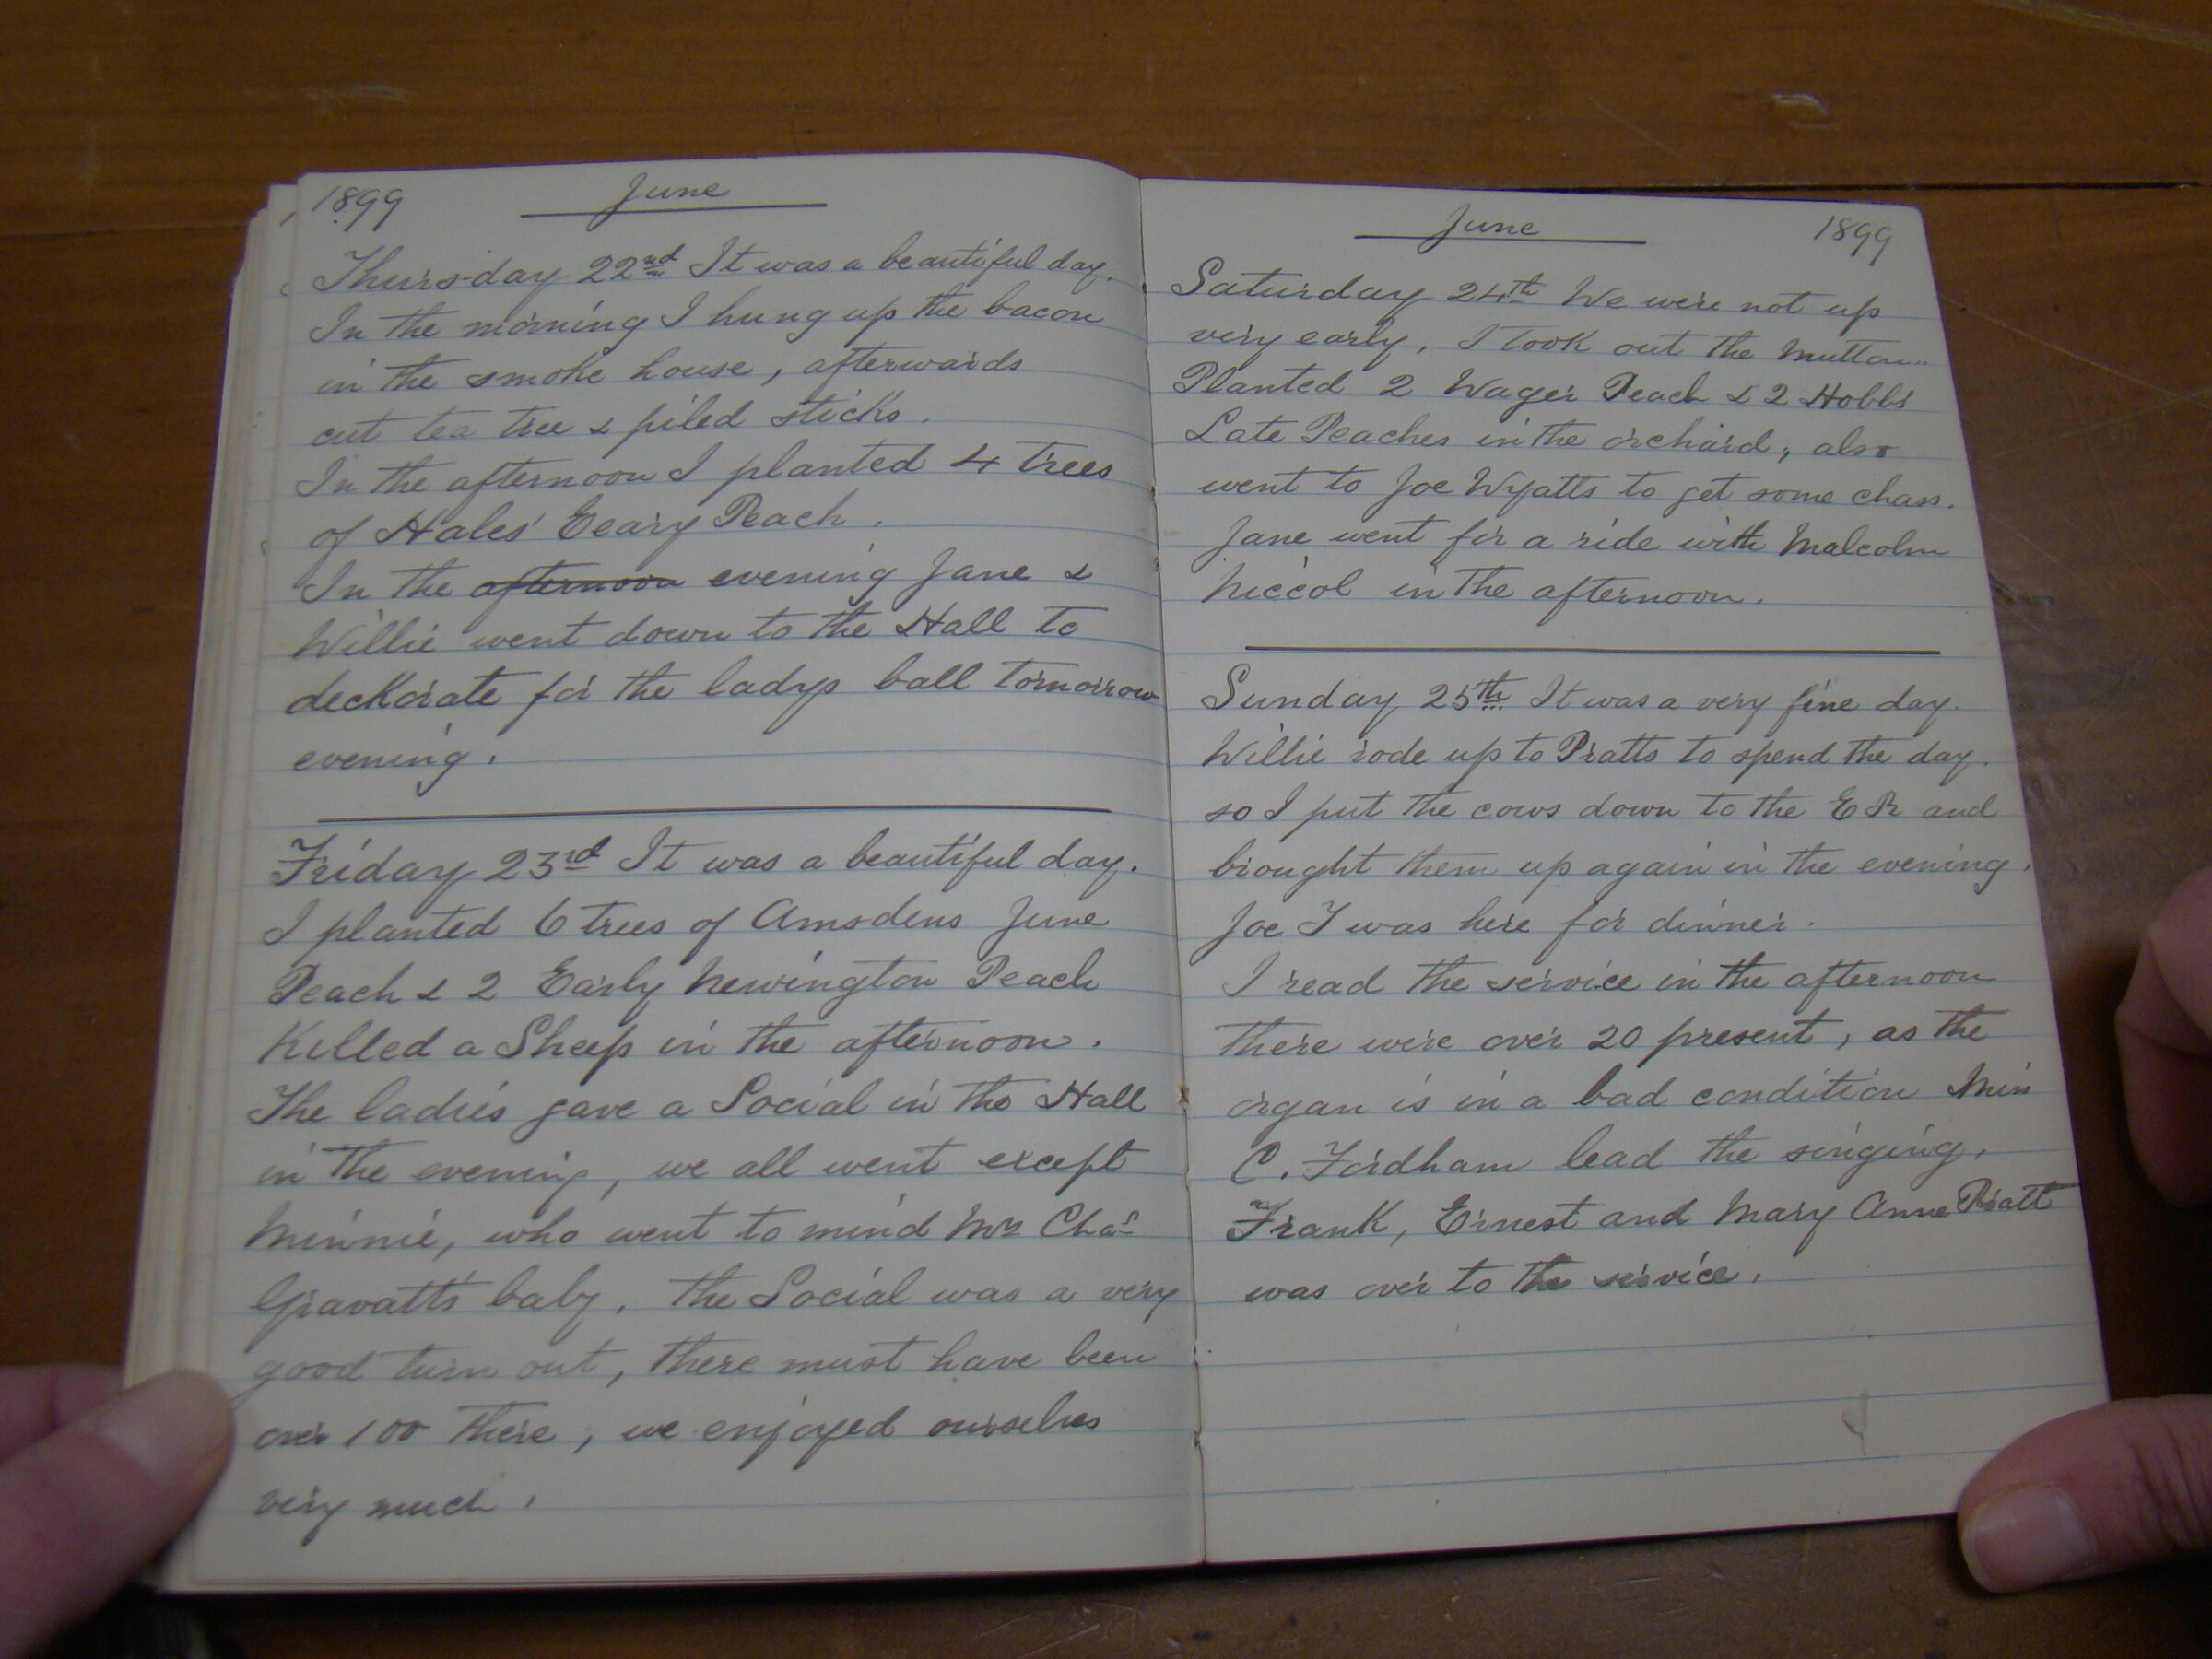 1899 June
Thursday 22nd It was a beautiful day.
In the morning I hung up the bacon
in the smoke house, afterwards
cut tea tree & piled sticks.
In the afternoon I planted 4 trees
of Hales' Eeary Peach.
In the afternoon evening Jane &
Willie went down to the Hall to
deckorate for the ladys ball tomorrow
evening.
Friday 23rd It was a beautiful day.
I planted 6 trees of Amsdens June
Peach & 2 Early Newington Peach
Killed a Sheep in the afternoon.
The ladies gave a Social in the Hall
in the evening, we all went except
Minnie, who went to mind Mrs Chas
Gravatts baby. The Social was a very
good turn out, there must have been
over 100 there, we enjoyed ourselves
very much.
June 1899
Saturday 24th We were not up
very early, I took out the Mutton
Planted 2 Wager Peach & 2 Hobbs
Late Peaches in the orchard, also
went to Joe Wyatts to get some
Jane went for a ride with Malcolm
Niccol in the afternoon.
Sunday 25th It was a very fine day.
Willie rode up to Pratts to spend the day.
so I put the cows down to the E R and
brought them up again in the evening.
Joe was here for dinner.
I read the service in the afternoon
there were over 20 present, as the
organ is in a bad condition
C. Fordham lead the singing.
Frank, Ernest and Mary Anne Pratt
was over to the service.